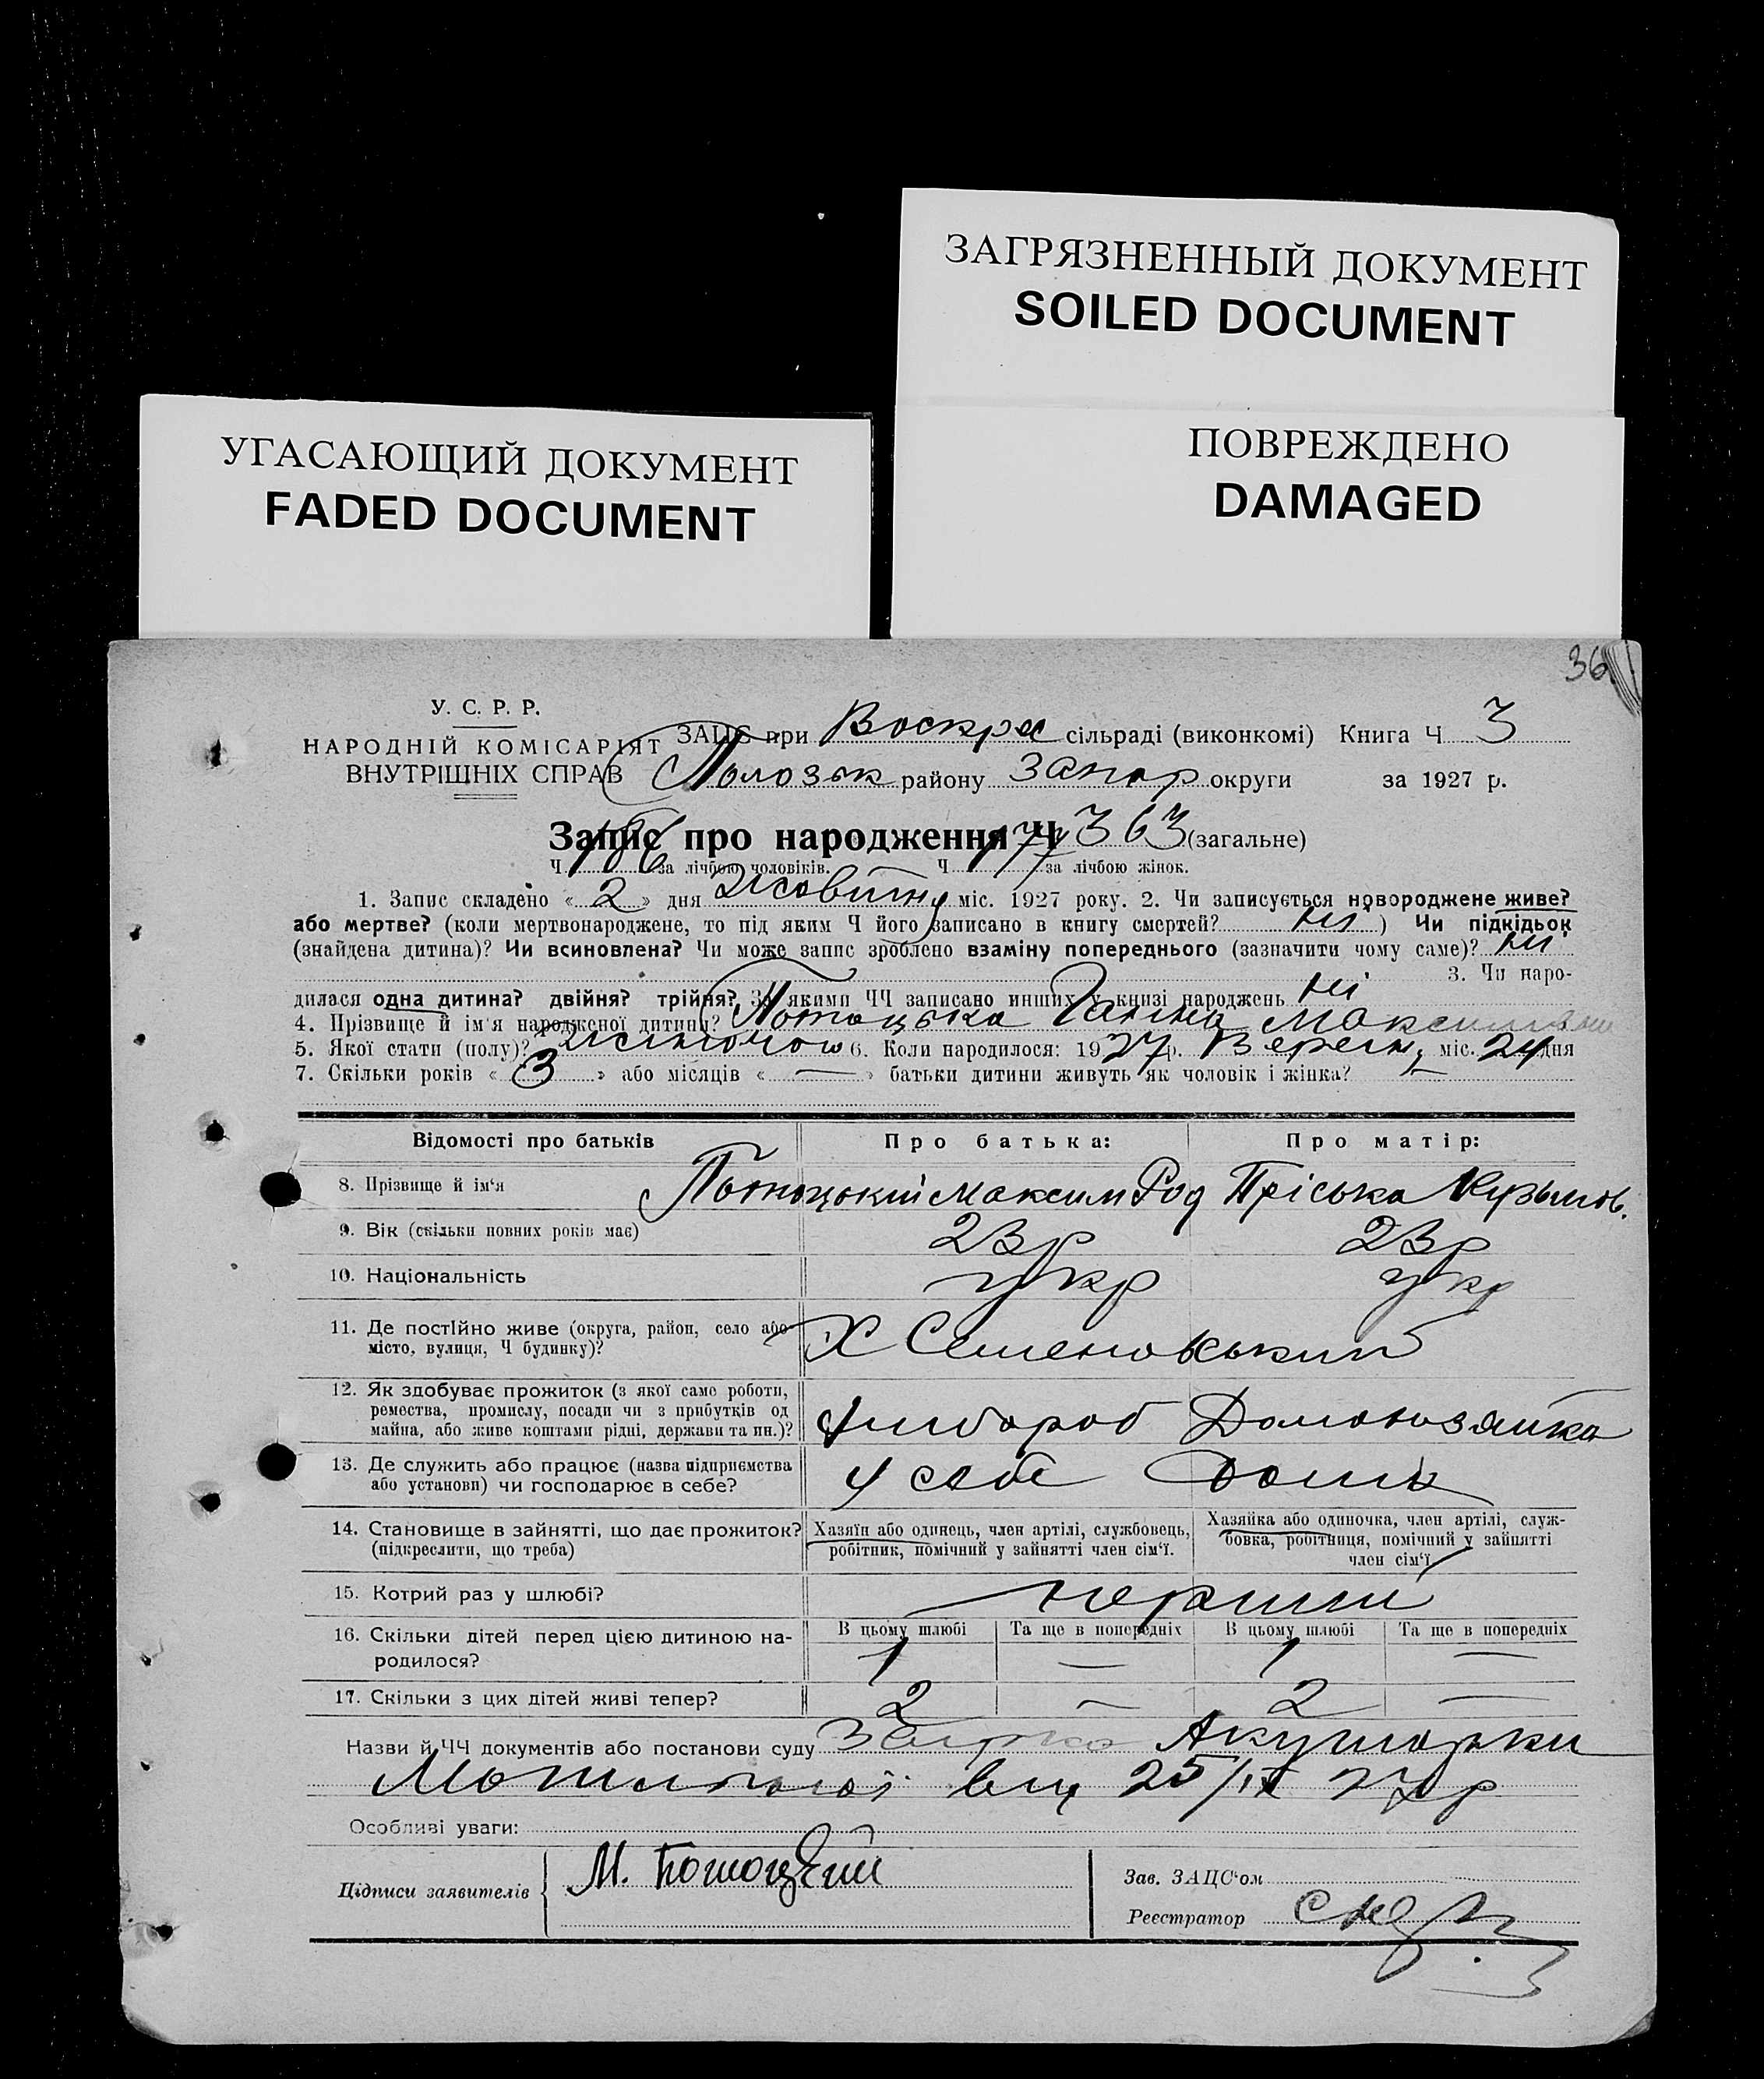 ЗАГРЯЗНЕННЫЙ ДОКУМЕНТ
SOILED DOCUMENT
УГАСАЮЩИЙ ДОКУМЕНТ
FADED DOCUMENT
ПОВРЕЖДЕНО
DAMAGED
36
У. С. Р. Р.
НАРОДНІЙ КОМІСАРІЯТ
ВНУТРІШНІХ СПРАВ
ЗАЦС при Воскрес сільраді (виконкомі) Книга Ч 3
Полозьк району Запор округи за 1927 р.
Запис про народження Ч 363 (загальне)
Ч 186 за лічбою чоловіків. Ч 177 за лічбою жінок.
1. Запис складено « 2 » дня Жовтня міс. 1927 року. 2. Чи записується новороджене живе?
або мертве? (коли мертвонароджене, то під яким Ч його записано в книгу смертей? Ні ) Чи підкідьок
(знайдена дитина)? Чи всиновлена? Чи може запис зроблено взаміну попереднього (зазначити чому саме)? Ні
3. Чи наро-
дилася одна дитина? двійня? трійня? За якими ЧЧ записано инших у книзі народжень Ні
4. Прізвище й ім'я народженої дитини? Потоцька Ганна Максимівна
5. Якої стати (полу)? Жіночої 6. Коли народилося: 1927 р. Вересн міс. 24 дня
7. Скільки років « 3 » або місяців « — » батьки дитини живуть як чоловік і жінка? —
Відомості про батьків Про батька: Про матір:
8. Прізвище й ім'я Потоцький Максим Род Пріська Кузьмов.
9. Вік (скільки повних років має) 23 р 23 р
10. Національність укр укр
11. Де постійно живе (округа, район, село або
місто, вулиця, Ч будинку)? Х Семеновський
12. Як здобуває прожиток (з якої саме роботи,
ремества, промислу, посади чи з прибутків од
майна, або живе коштами рідні, держави та ин.)? Хлібороб Домохозяйка
13. Де служить або працює (назва підприємства
або установи) чи господарює в себе? У себе Дома
14. Становище в зайнятті, що дає прожиток?
(підкреслити, що треба)
Хазяїн або одинець, член артілі, службовець,
робітник, помічний у зайнятті член сім'ї.
Хазяйка або одиночка, член артілі, служ-
бовка, робітниця, помічний у зайнятті
член сім'ї
15. Котрий раз у шлюбі? перший
16. Скільки дітей перед цією дитиною на-
родилося?
В цьому шлюбі Та ще в попередніх В цьому шлюбі Та ще в попередніх
1 — 1 —
17. Скільки з цих дітей живі тепер? 2 — 2 —
Назви й ЧЧ документів або постанови суду Акушорки
від 25/IX 27 р
Особливі уваги:
Підписи заявителів М. Потоцкий
Зав. ЗАЦС'ом
Реєстратор